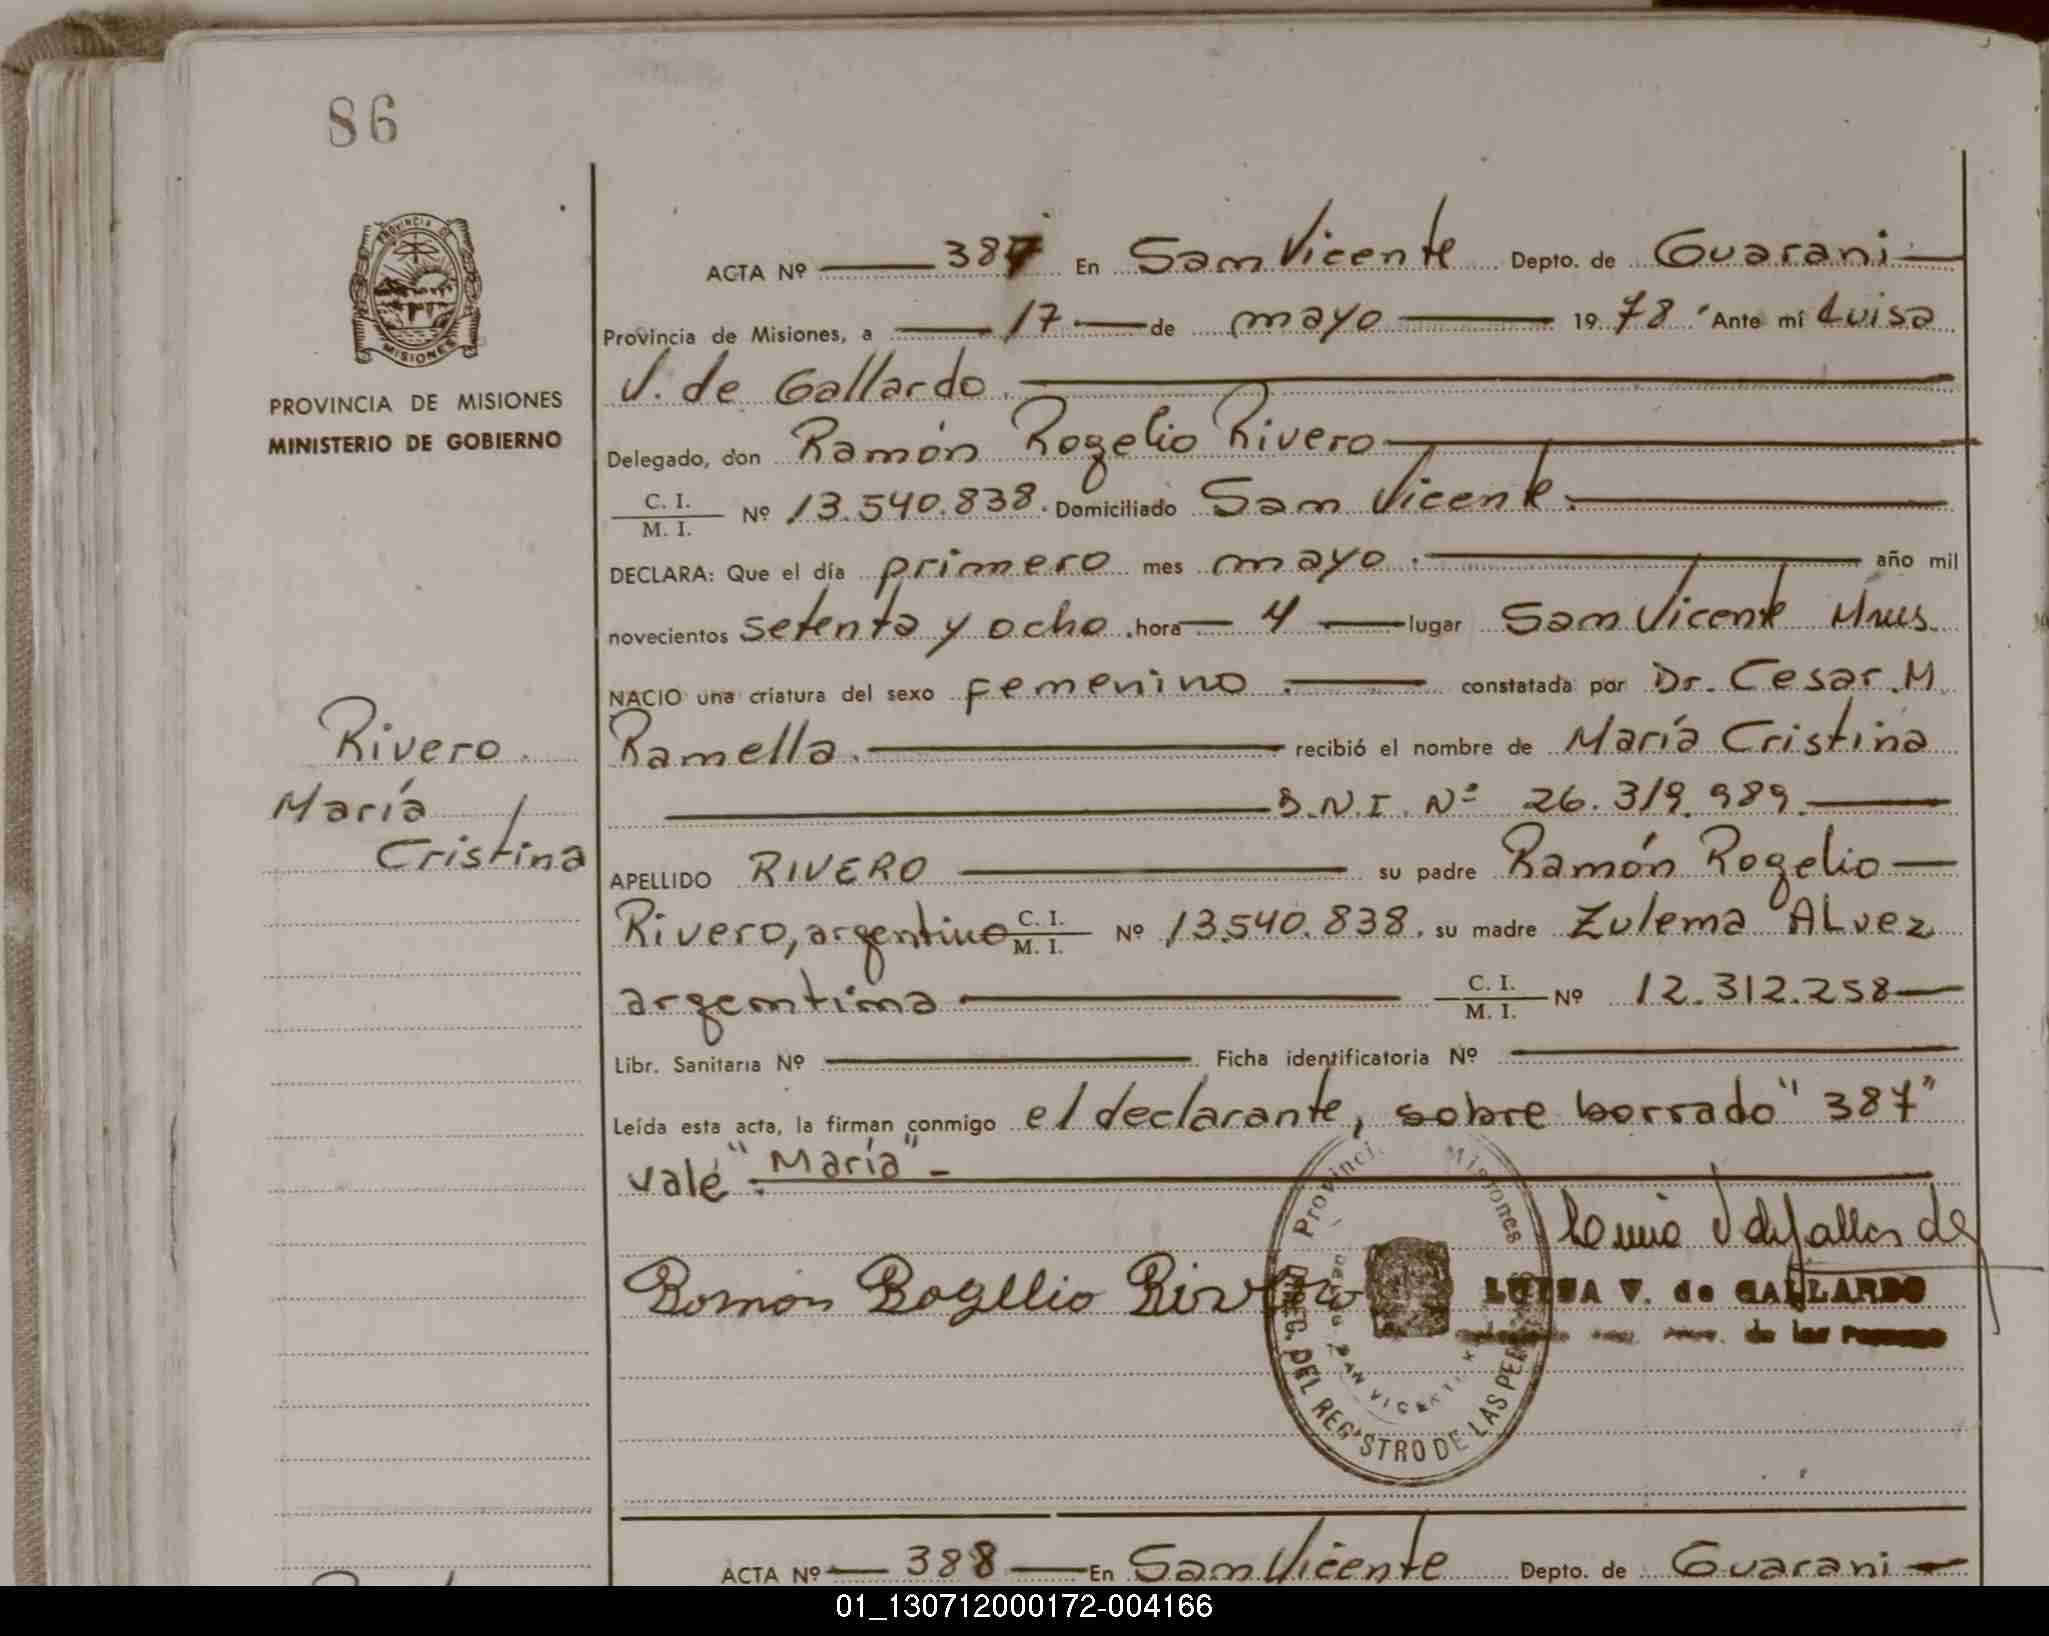 86
PROVINCIA DE MISIONES
PROVINCIA DE MISIONES
MINISTERIO DE GOBIERNO
Rivero.
María
Cristina
ACTA Nº 387 En San Vicente Depto. de Guarani
Provincia de Misiones, a 17 de mayo 1978 Ante mí Luisa
V. de Gallardo.
Delegado, don Ramón Rogelio Rivero
C. I. M. I. Nº 13.540.838. Domiciliado San Vicente.
DECLARA: Que el día primero mes mayo. año mil
novecientos setenta y ocho. hora 4 lugar San Vicente Mnes.
NACIO una criatura del sexo femenino. constatada por Dr. Cesar M.
Ramella. recibió el nombre de María Cristina
D.N.I. Nº 26.319.989.
APELLIDO RIVERO su padre Ramón Rogelio
Rivero, argentino C. I. M. I. Nº 13.540.838. su madre Zulema ALvez
argentina C. I. M. I. Nº 12.312.258
Libr. Sanitaria Nº Ficha identificatoria Nº
Leída esta acta, la firman conmigo el declarante, sobre borrado "387"
vale "María" -
Ramon Rogelio Rivero
LUISA V. de GALLARDO
de las
Provinci. Misiones
DEL REGISTRO DE LAS PE
SAN VICENTE
ACTA Nº 388 En San Vicente Depto. de Guarani
01_130712000172-004166